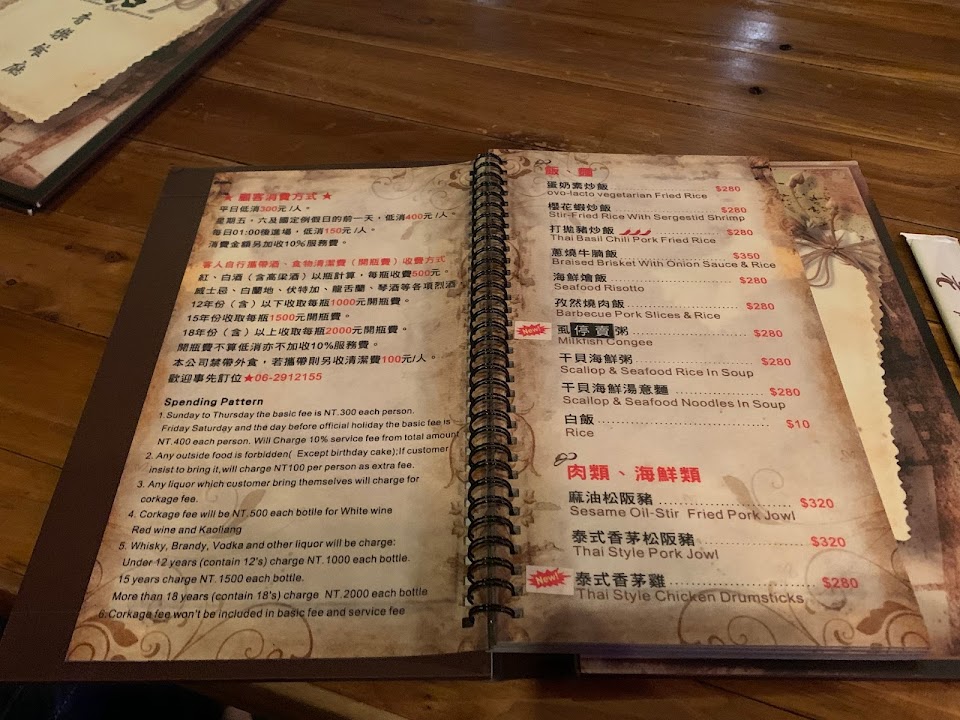 音樂餐廳
★ 顧客消費方式 ★
平日低消300元/人。
星期五，六及國定例假日的前一天，低消400元/人。
每日01:00後進場，低消150元/人。
消費金額另加收10%服務費。
客人自行攜帶酒、食物清潔費（開瓶費）收費方式
紅、白酒（含高粱酒）以瓶計算，每瓶收費500元。
威士忌、白蘭地、伏特加、龍舌蘭、琴酒等各項烈酒
12年份（含）以下收取每瓶1000元開瓶費。
15年份收取每瓶1500元開瓶費。
18年份（含）以上收取每瓶2000元開瓶費。
開瓶費不算低消亦不加收10%服務費。
本公司禁帶外食，若攜帶則另收清潔費100元/人。
歡迎事先訂位★06-2912155
Spending Pattern
1.Sunday to Thursday the basic fee is NT.300 each person.
Friday Saturday and the day before official holiday the basic fee is
NT.400 each person. Will Charge 10% service fee from total amount
2. Any outside food is forbidden( Except birthday cake);If customer
insist to bring it,will charge NT100 per person as extra fee.
3. Any liquor which customer bring themselves will charge for
corkage fee.
4. Corkage fee will be NT.500 each bottle for White wine
Red wine and Kaoliang
5. Whisky, Brandy, Vodka and other liquor will be charge:
Under 12 years (contain 12's) charge NT.1000 each bottle.
15 years charge NT.1500 each bottle.
More than 18 years (contain 18's) charge NT.2000 each bottle
6.Corkage fee won't be included in basic fee and service fee
飯、麵
蛋奶素炒飯 $280
ovo-lacto vegetarian Fried Rice
櫻花蝦炒飯 $280
Stir-Fried Rice With Sergestid Shrimp
打拋豬炒飯 $280
Thai Basil Chili Pork Fried Rice
蔥燒牛腩飯 $350
Braised Brisket With Onion Sauce & Rice
海鮮燴飯 $280
Seafood Risotto
孜然燒肉飯 $280
Barbecue Pork Slices & Rice
New! 虱停賣粥 $280
Milkfish Congee
干貝海鮮粥 $280
Scallop & Seafood Rice In Soup
干貝海鮮湯意麵 $280
Scallop & Seafood Noodles In Soup
白飯 $10
Rice
肉類、海鮮類
麻油松阪豬 $320
Sesame Oil-Stir Fried Pork Jowl
泰式香茅松阪豬 $320
Thai Style Pork Jowl
New! 泰式香茅雞 $280
Thai Style Chicken Drumsticks